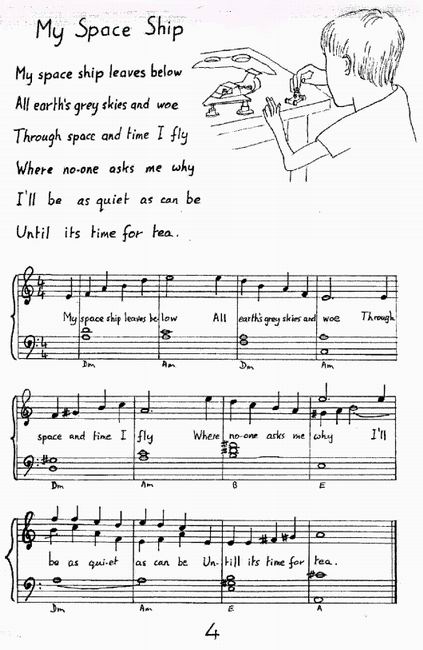 My Space Ship
My space ship leaves below
All earth's grey skies and woe
Through space and time I fly
Where no-one asks me why
I'll be as quiet as can be
Until its time for tea.
4 4
My space ship leaves be-low All earth's grey skies and woe Through
4 4
Dm Am Dm Am
space and time I fly Where no-one asks me why I'll
Dm Am B E
be as qui-et as can be Un-till its time for tea.
Dm Am E A
4